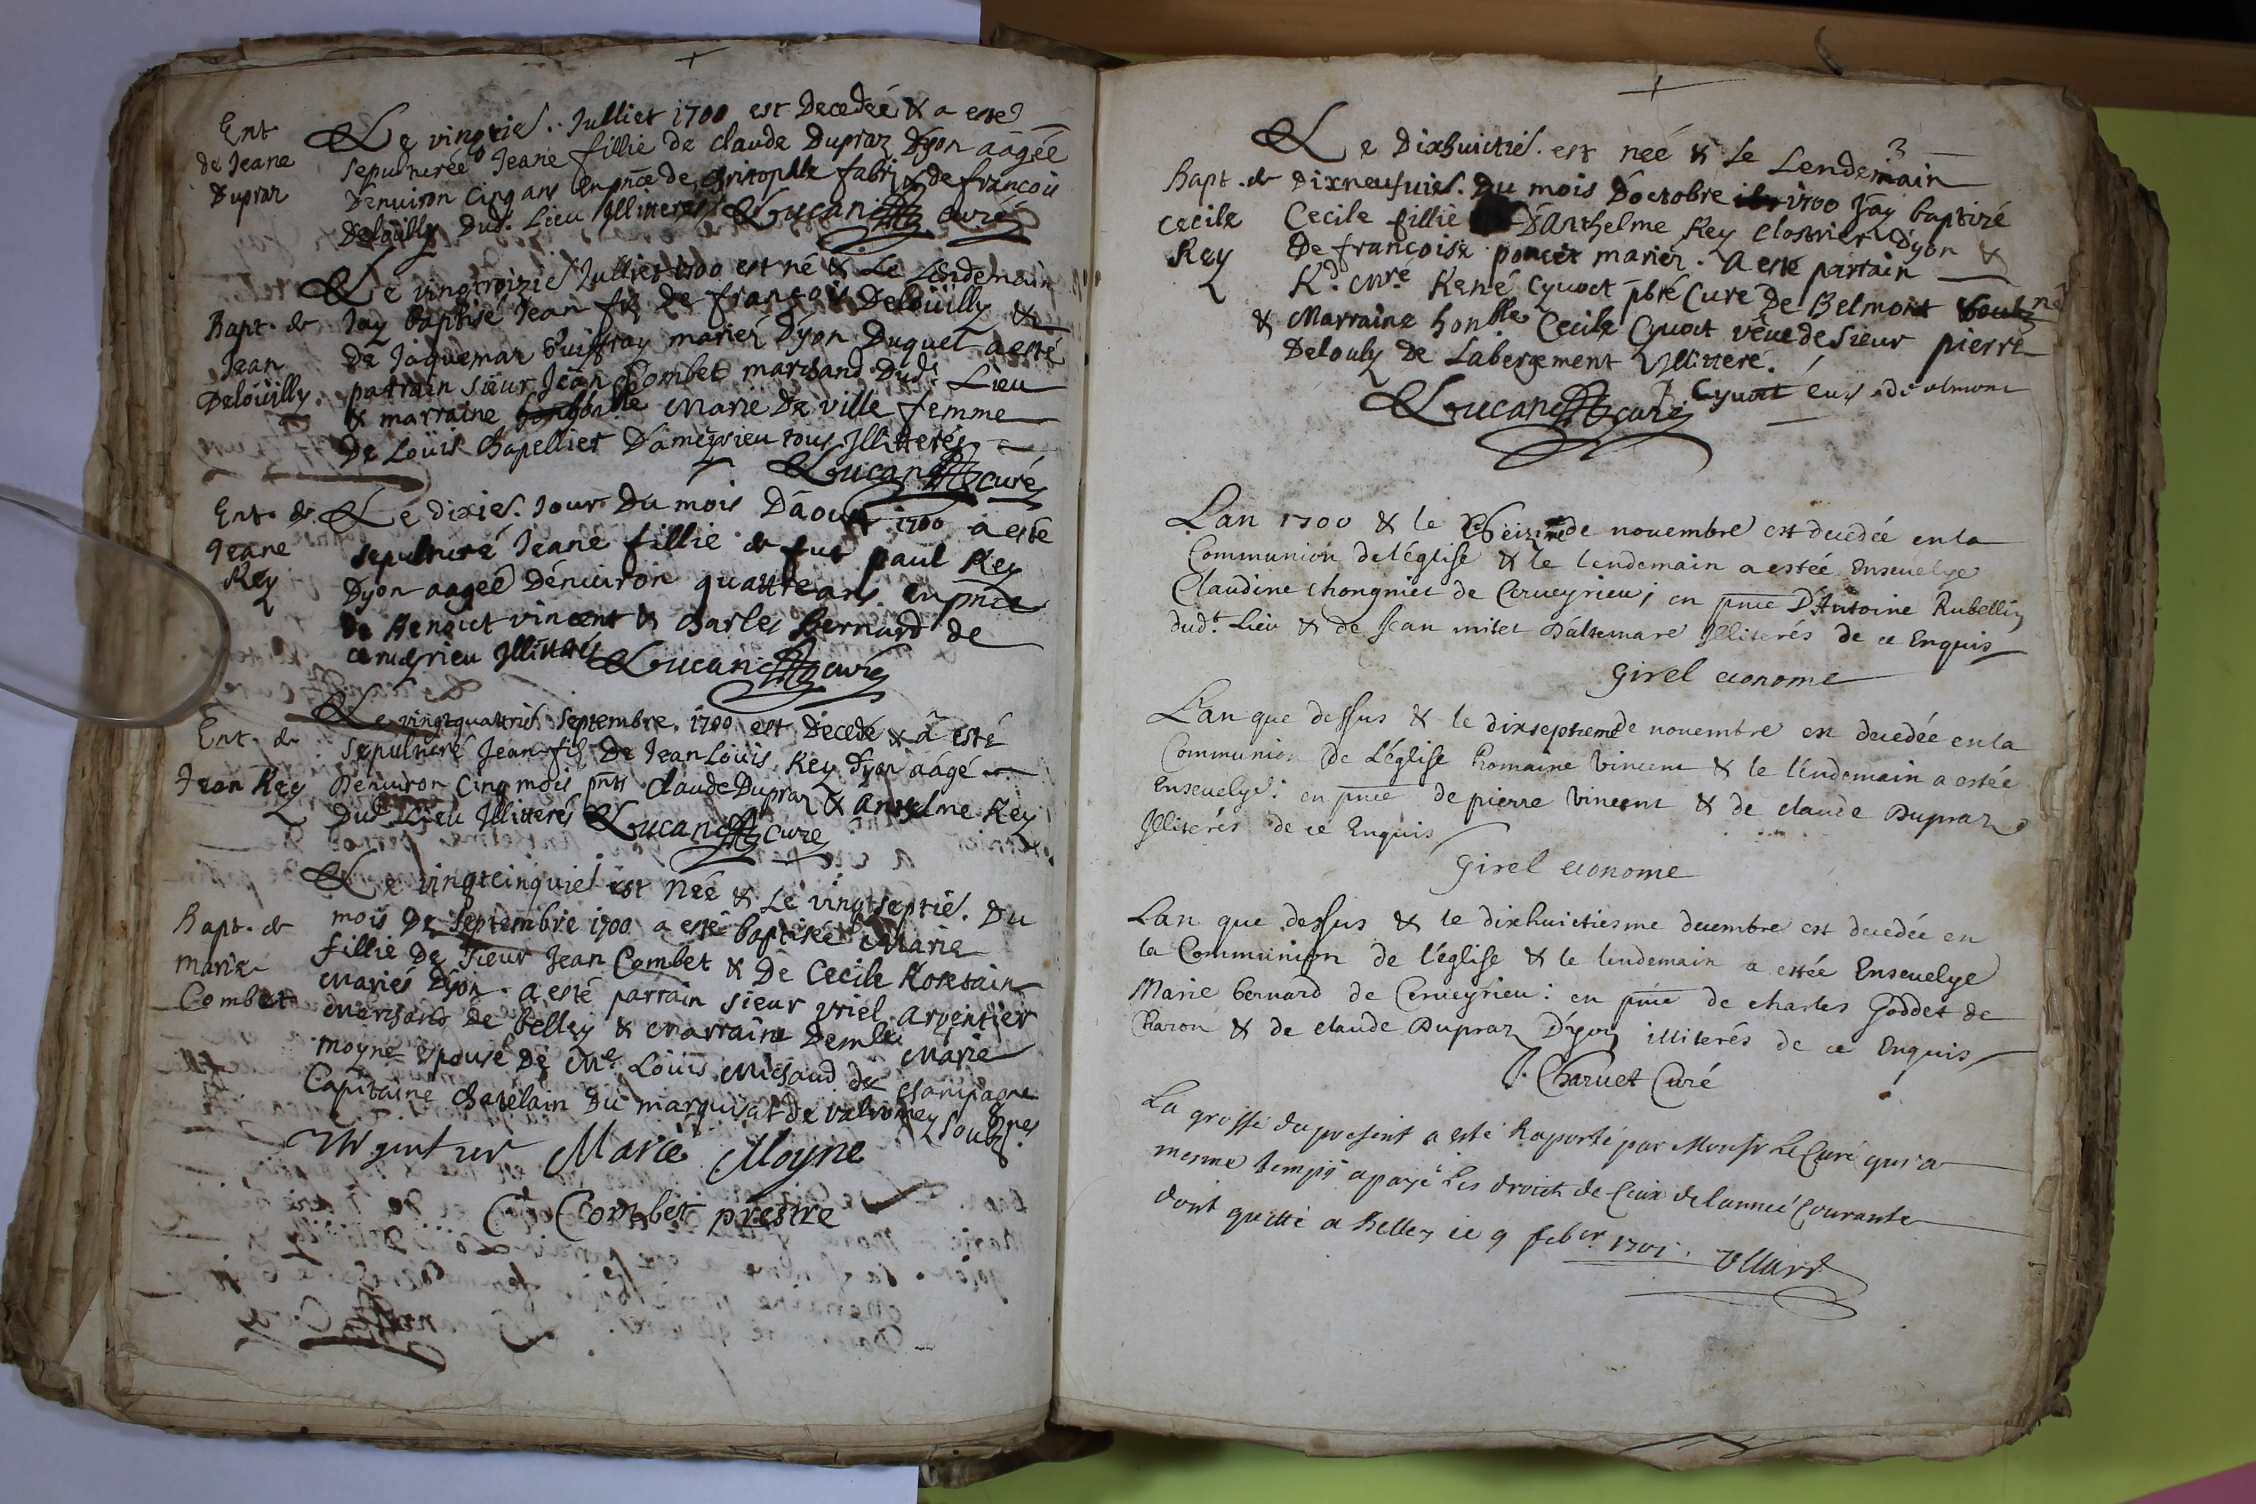 Ent
de Jeane
Dupraz
Le vingties. Julliet 1700 est Decedeé & a esté
sepulturéé Jeane fillie de claude Dupraz Dyon aagée
Denuiron cinq ans en pnce de christophle fabri & de francois
Delouilly Dud. Lieu Illitteres Lucand curé
Bapt. de
Jean
Deloüilly
Le vingtroizie Julliet 1700 est né & Le Lendemain
Jay baptisé Jean fiz de francois Deloüilly &
De Jaquemaz buiffray mariez Dyon Duquel a esté
parrain sieur Jean Combet marchand Dud. Lieu
& marraine Marie De ville femme
De Loüis Chapellier Dameyzieu tous Illitterés
Lucand curé
Ent. de
Jeane
Rey
Le dixies. Jour Du mois Daoust 1700 a esté
sepulturé Jeane fillie de fut paul Rey
Dyon aageé Denuiron quattre ans en pnce
De Benoict vincent & charles Bernard de
cerueyrieu Illitterés Lucand curé
Ent. de
Jean Rey
Le vingtquattries. Septembre. 1700 est Decedé & a esté
sepulturé Jean fiz De Jean Loüis Rey Dyon aagé
Denuiron cinq mois pnts Claude Dupraz & Anselme Rey
Dud. Lieu Illitterés Lucand curé
Bapt. de
marie
Combet
Le vingtcinquies est Néé & Le vingtseptie. Du
mois De Septembre 1700 a esté baptiséé Marie
fillie De Sieur Jean Combet & De Cecile Rosetain
Mariés Dyon. a esté parrain Sieur Vriel Argentier
Marchand de belley & Marraine Demlle Marie
Moyne Epouse De Me. Loüis Michaud de champagne
Capitaine Chatelain Du marquisat de valromey soubznes.
Argentier Marie Moyne
Combet prestre
3
Bapt. de
Cecile
Rey
Le Dixhuicties. est néé & Le Lendemain
Dixneufuies. Du mois Doctobre 1700 Jay baptizé
Cecile fillie D'Anthelme Rey Clostrier Dyon &
De francoise poncet mariez. A esté parrain
Rd. Mre René Cyuoct pbre Curé De Belmont soubzné
& Marraine honble Cecile Cyuoct veuue de Sieur pierre
Delouly De Labergement Illitteré.
Lucand curé Cyuoct curé de belmont
L'an 1700 & le seiziesme de nouembre est decedée en la
Communion de l'église & le lendemain a estée Enseuelye
Claudine Chongniet de Cerueyrieu, en pnce D'Antoine Rubellin
dudt. Lieu & de Jean milet D'altemare Illiterés de ce Enquis
Girel econome
L'an que dessus & le dixseptieme de nouembre est decedée en la
Communion de L'église Romaine Vincent & le lendemain a estée
Enseuelye: en pnce de pierre Vincent & de claude Dupraz
Illiterés de ce Enquis
Girel econome
L'an que dessus & le dixhuictiesme decembre est decedée en
la Communion de l'église & le lendemain a estée Enseuelye
Marie bernard de Cerueyrieu: en pnce de charles Goddet de
Charon & de claude Dupraz D'yon illiterés de ce Enquis
P. Charuet Curé
La grosse du present a esté Raporté par Monsr Le Curé qui a
mesme temps a payé Les droits de Ceux de lanneé Courante
dont quitte a Belley ce 9 febvr 1701. Ulliard